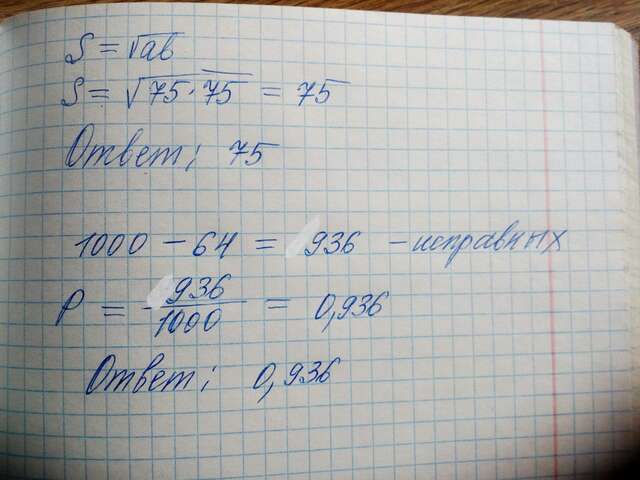 S = √ab
S = √75 · 75 = 75
Ответ: 75
1000 - 64 = 936 - исправных
P = 936/1000 = 0,936
Ответ: 0,936